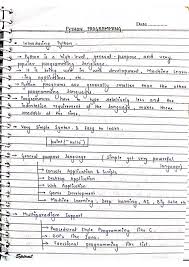 Date
PYTHON PROGRAMMING
Introducing Python
→ Python is a high-level, general-purpose and very
popular programming language.
→ It is being used in web development, Machine learn-
ing applications
→ Python programs generally are smaller than the other
programming languages
→ Programmers have to type relatively less and the
indentation requirement of the language makes them
readable all the time.
Very Simple Syntax & Easy to learn
print("Hello")
General purpose language (Simple yet very powerful
language)
Console Application & Scripts
Desktop Application
Web Application
Game Development
Machine Learning, Deep learning, AI, Big Data etc
Multiparadigm Support
→ Procedural Style Programming like C
→ OOPs like Java
→ Functional programming like
Spiral